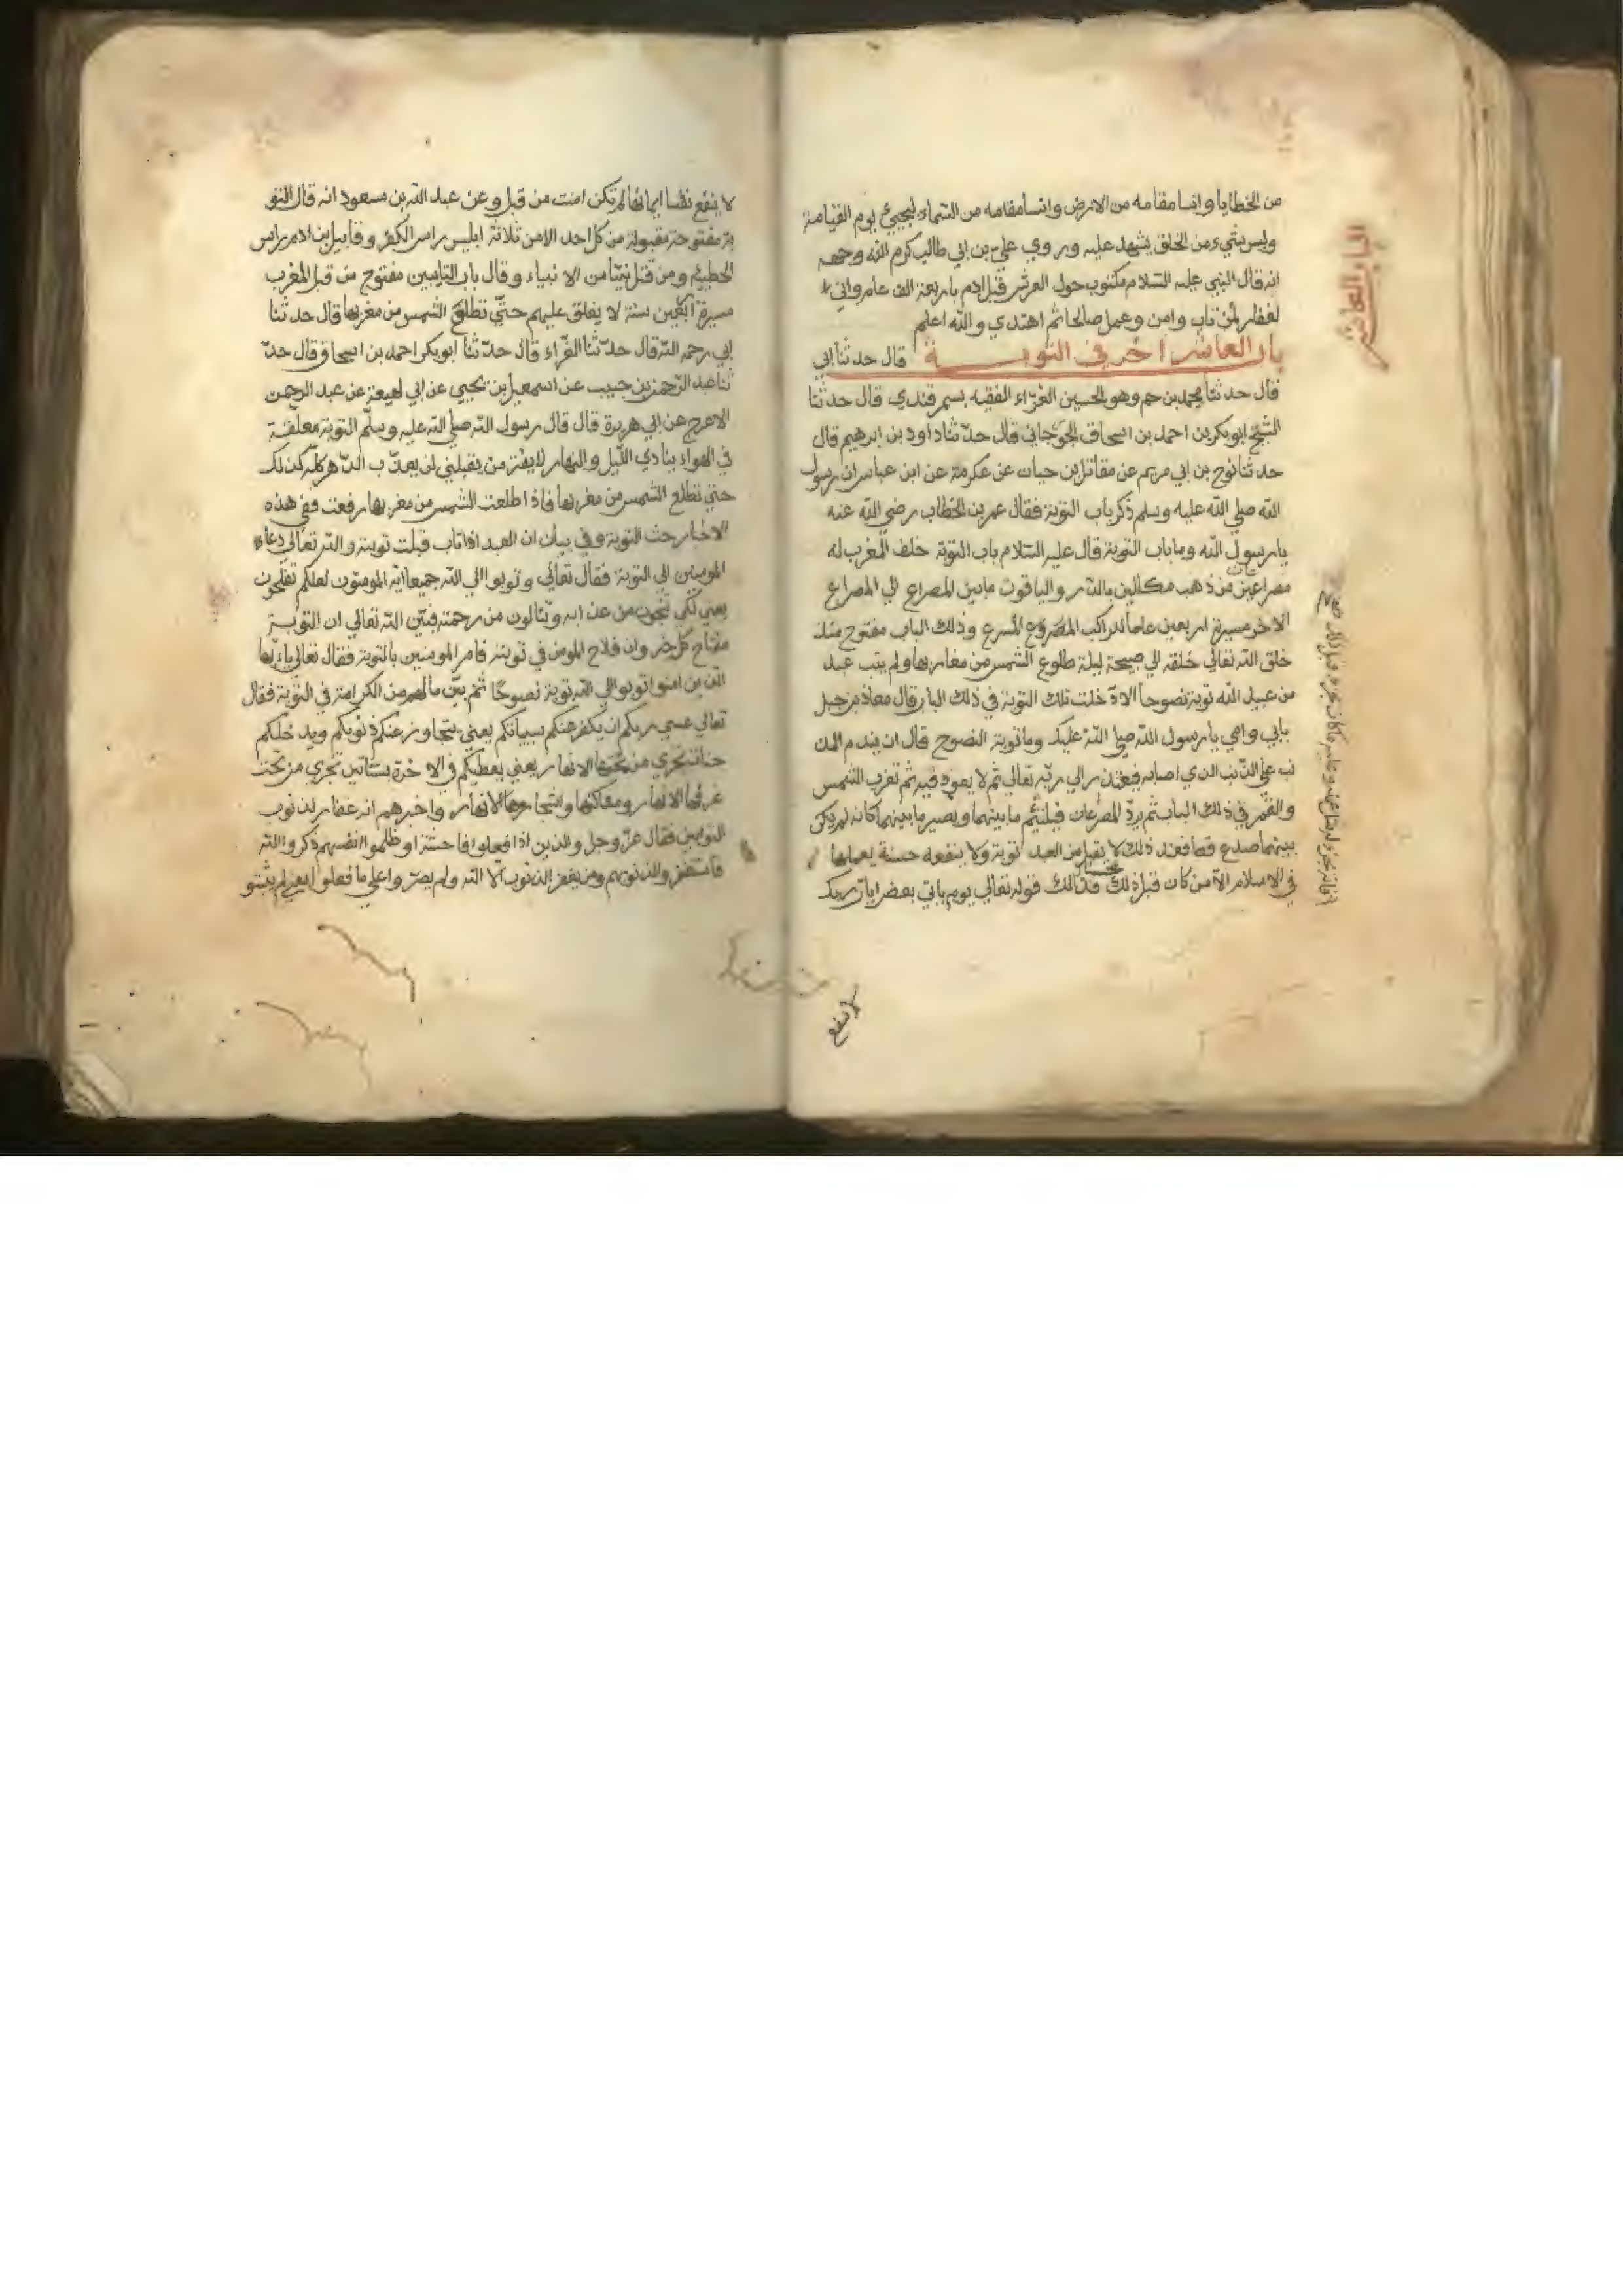 من الخطايا وانسا مقامه من الارض وانسا مقامه من السماء ليجيئ يوم القيامة
وليس شيء من الخلق يشهد عليه وروي علي بن ابي طالب كرم الله وجهه
انه قال النبي عليه السلام مكتوب حول العرش قبل ادم باربعة الف عام واني
لغفار لمن تاب وامن وعمل صالحا ثم اهتدي والله اعلم
باب العاشر اخر في التوبة قال حدثنا ابي
قال حدثنا محمد بن حم وهو الحسين الفراء الفقيه بسمرقندي قال حدثنا
الشيخ ابو بكر بن احمد بن اسحاق الجوجاني قال حدثنا داود بن ابرهيم قال
حدثنا نوح بن ابي مريم عن مقاتل بن حيان عن عكرمة عن ابن عباس ان رسول
الله صلي الله عليه وسلم ذكر باب التوبة فقال عمر بن الخطاب رضي الله عنه
يا رسول الله وما باب التوبة قال عليه السلام باب التوبة خلف المغرب له
مصراعين من ذهب مكللين بالدر والياقوت ما بين المصراع الي المصراع
الاخر مسيرة اربعين عاما للراكب المسرع وذلك الباب مفتوح منذ
خلق الله تعالي خلقه الي صبيحة ليلة طلوع الشمس من مغاربها ولم يتب عبد
من عبيد الله توبة نصوحا الا دخلت تلك التوبة في ذلك الباب قال معاذ بن جبل
بابي وامي يا رسول الله صلي الله عليك وما توبة النصوح قال ان يندم المذ
نب علي الذنب الذي اصابه فيعتذر الي ربه تعالي ثم لا يعود فيه ثم تغرب الشمس
والقمر في ذلك الباب ثم يرد المصرعان فيلتئم ما بينهما ويصير ما بينهما كانه لم يكن
بينهما صدع قط فعند ذلك لا يقبل من العبد توبة ولا ينفعه حسنة يعملها
في الاسلام الا من كان قبل ذلك فذلك قوله تعالي يوم ياتي بعض ايات ربك
لا ينفع
الباب العاشر
لا ينفع نفسا ايمانها لم تكن امنت من قبل وعن عبد الله بن مسعود انه قال التو
بة مفتوحة مقبولة من كل احد الا من ثلاثة ابليس راس الكفر وقابيل بن ادم راس
الخطيئة ومن قتل نبيا من الانبياء وقال باب التايبين مفتوح من قبل المغرب
مسيرة اربعين سنة لا يغلق عليهم حتي تطلع الشمس من مغربها قال حدثنا
ابي رحمه الله قال حدثنا الفراء قال حدثنا ابو بكر احمد بن اسحاق قال حد
ثنا عبد الرحمن بن حبيب عن اسمعيل بن يحيي عن ابي لهيعة عن عبد الرحمن
الاعرج عن ابي هريرة قال قال رسول الله صلي الله عليه وسلم التوبة معلقة
في الهواء ينادي الليل والنهار لا يفتر من يقبلني لن يعذب الدهر كله كذلك
حتي تطلع الشمس من مغربها فاذا طلعت الشمس من مغربها رفعت ففي هذه
الاخبار حث التوبة وفي بيان ان العبد اذا تاب قبلت توبته والله تعالي دعاء
المومنين الي التوبة فقال تعالي وتوبوا الي الله جميعا ايه المومنون لعلكم تفلحون
يعني لكي تنجون من عذابه وتنالون من رحمته فبين الله تعالي ان التوبة
مفتاح كل خير وان فلاح المومن في توبته فامر المومنين بالتوبة فقال تعالي يا ايها
الذين امنوا توبوا الي الله توبة نصوحا ثم بين ما لهم من الكرامة في التوبة فقال
تعالي عسي ربكم ان يكفر عنكم سيياتكم يعني يتجاوز عنكم ذنوبكم ويدخلكم
جنات تجري من تحتها الانهار يعني يعطيكم في الاخرة بساتين تجري من تحت
غرفها الانهار ومساكنها واشجارها الانهار واخبرهم انه غفار لذنوب
التوابين فقال عز وجل والذين اذا فعلوا فاحشة او ظلموا انفسهم ذكروا الله
فاستغفروا لذنوبهم ومن يغفر الذنوب الا الله ولم يصروا علي ما فعلوا